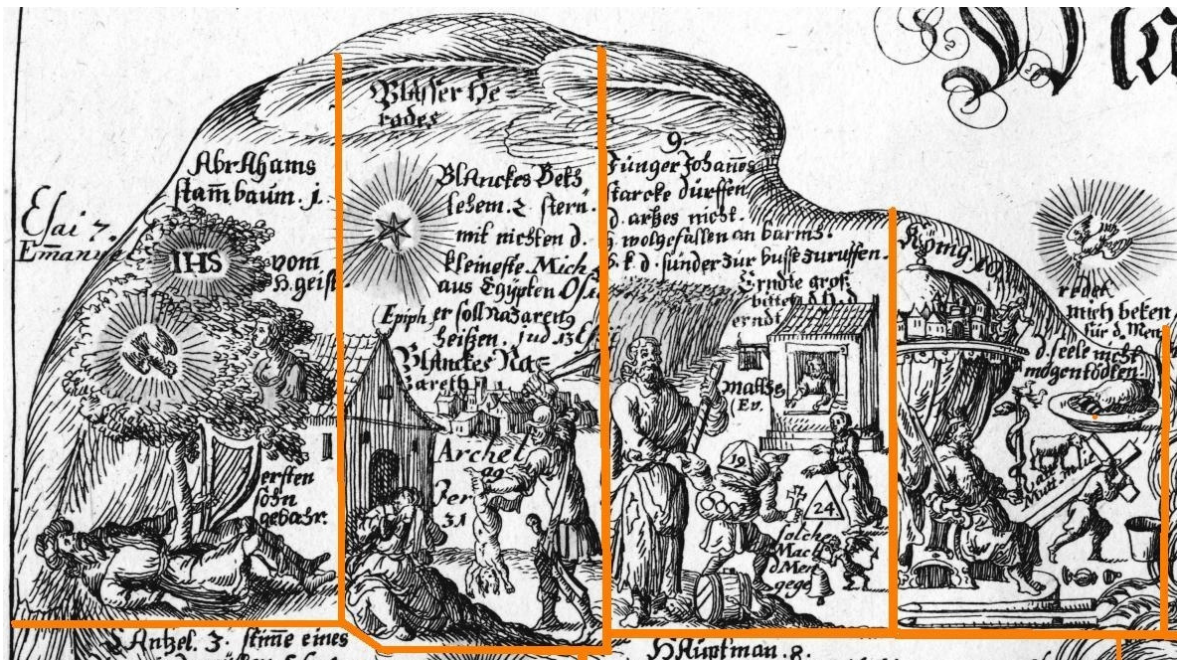 Esai 7.
Emanuel
AbrAhams
stam̅baum. 1.
IHS
vom
H. geist
ersten
sohn
gebohr.
BlAsser He-
rodes
BlAnckes Beth
lehem. 2. stern.
mit nichten d.
kleineste. Mich
aus Egypten
Epiph er soll NaZaren9
heißen. jud. 13
BlAnckes Na-
zareth
Archel
ag
Jer
31
9.
Jünger Johanes
starcke dürffen
d. artzes nicht.
wolgefallen an barmh.
d. sünder zur busse zuruffen.
Erndte groß
bittet
erndt
matthæ
Ev.
19
24
solch
Mac
d Men
gege
König. 10.
redet
mich beken
für d. Men
d. seele nicht
mögen tödten.
S Antzel. 3. stim̅e eines
HAuptman. 8.